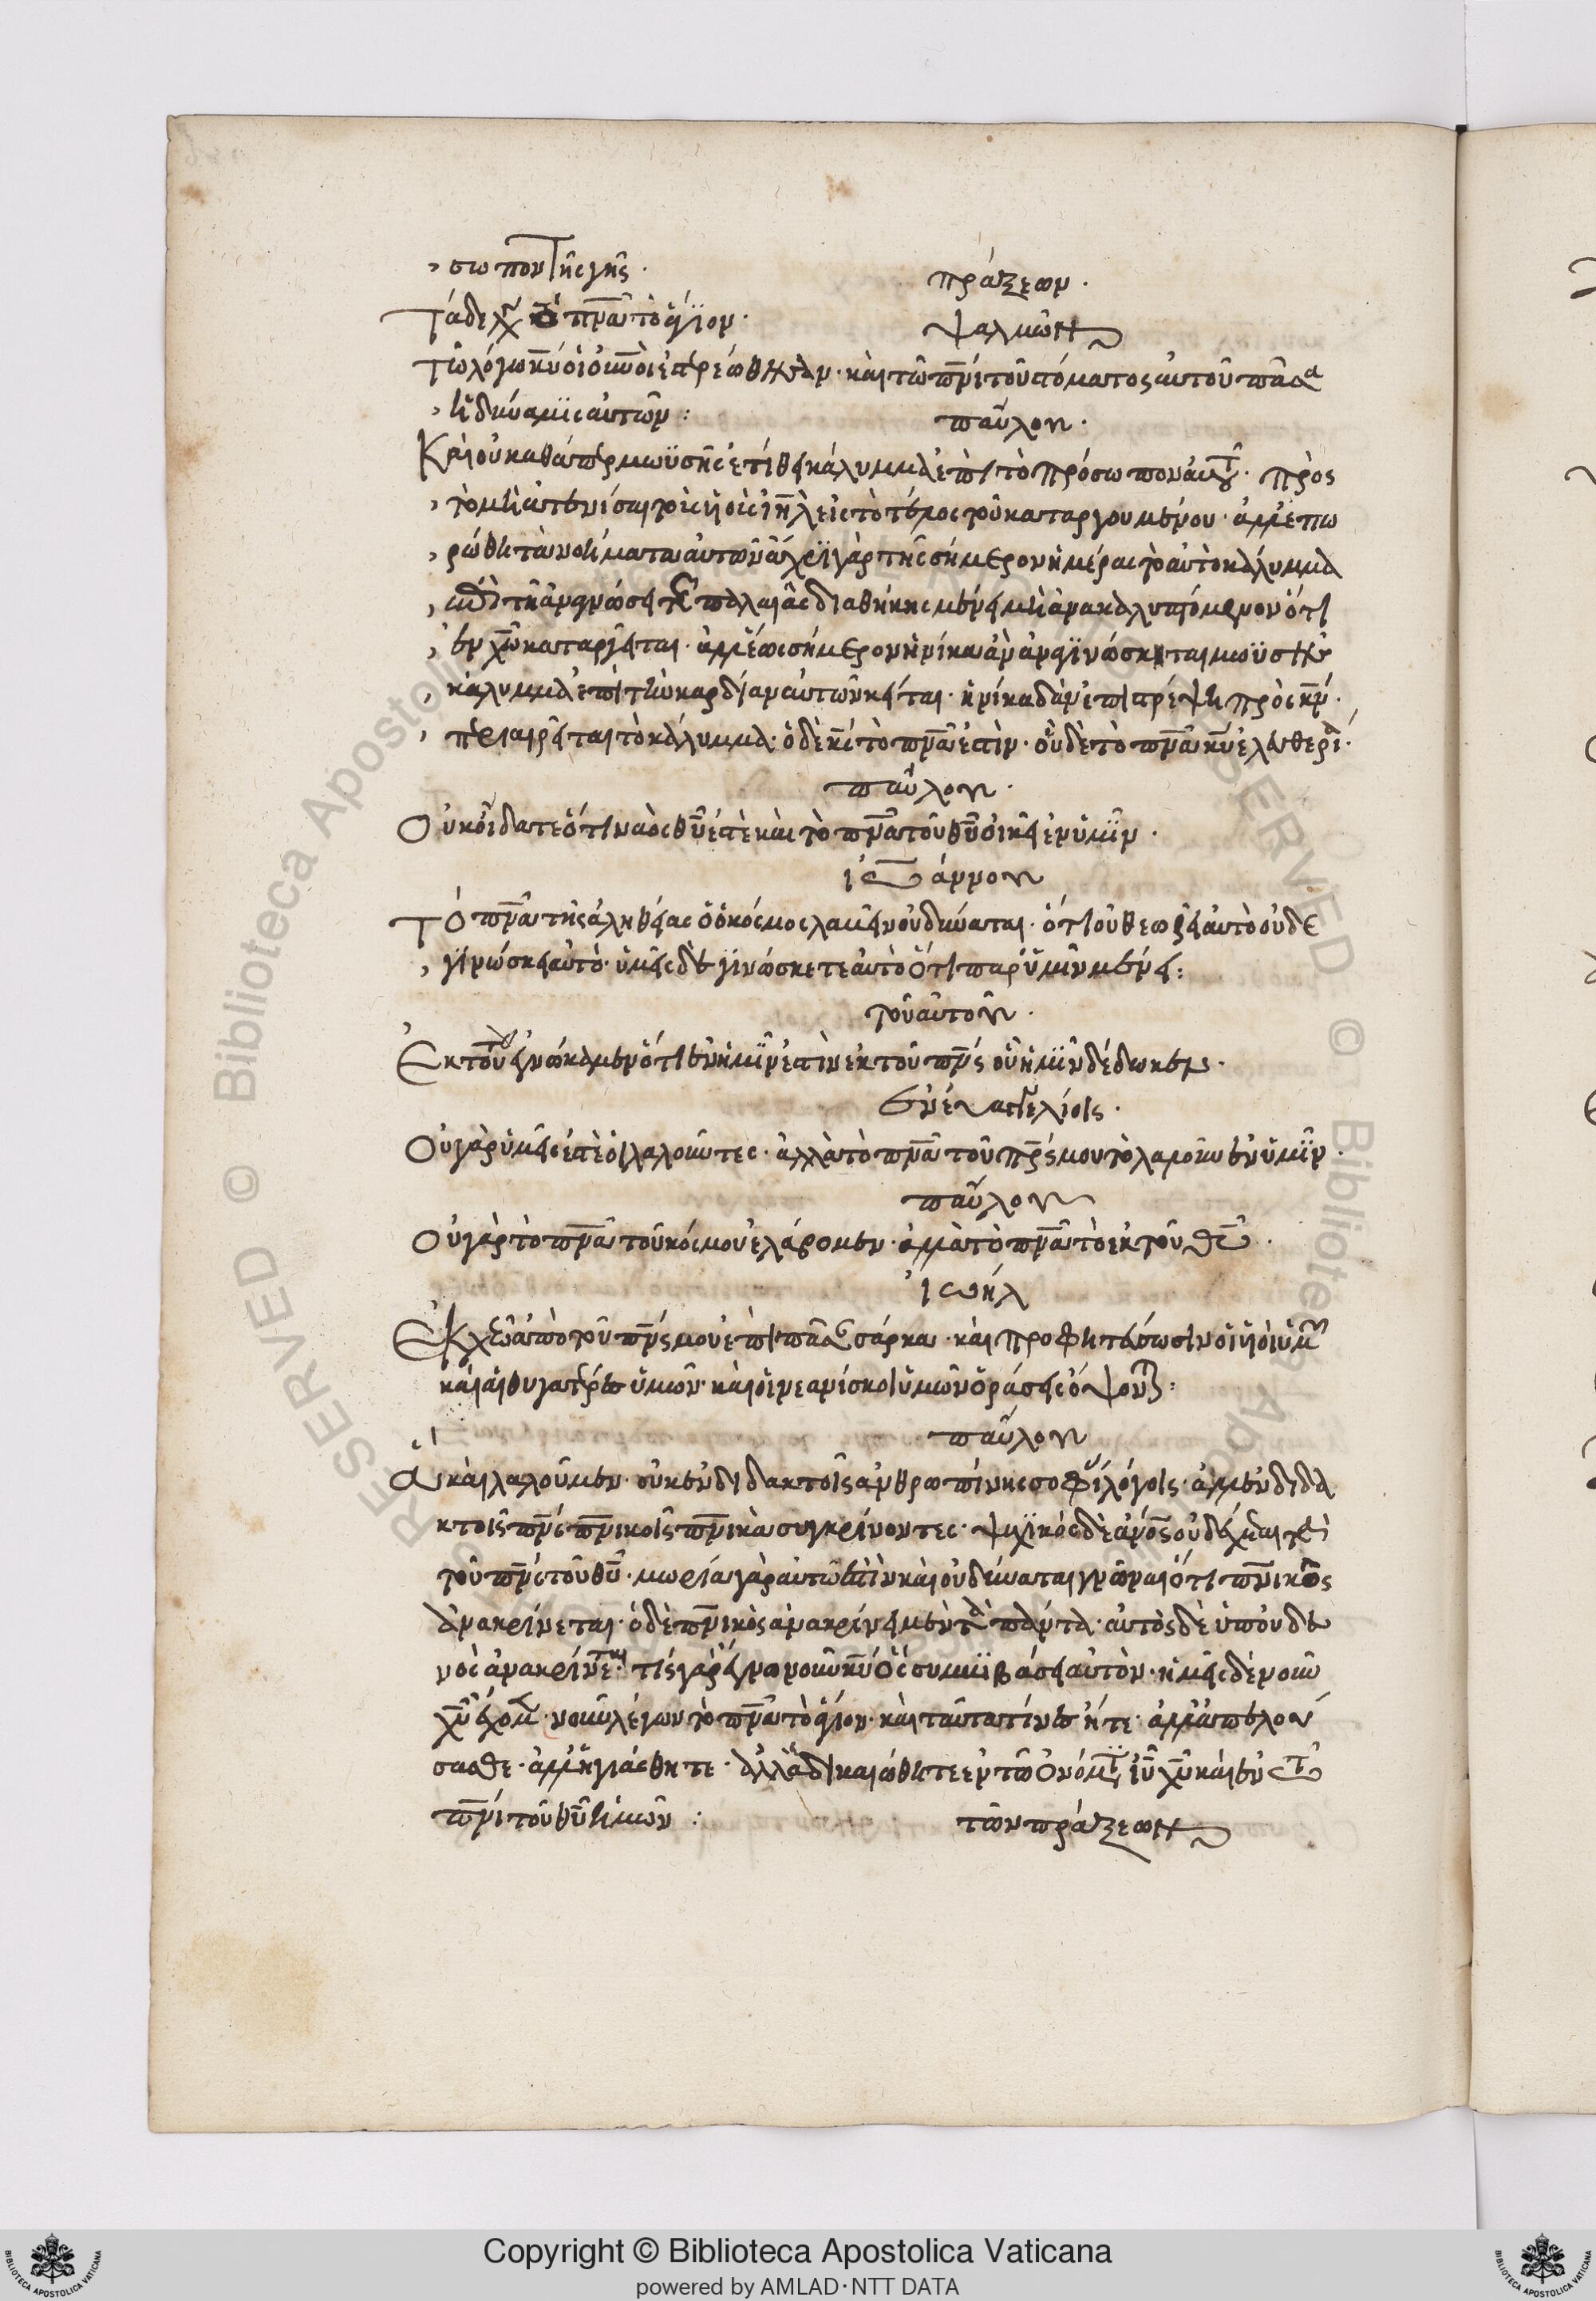 σωπον τῆς γῆς· πράξεων·
Τάδε λ΄ τὸ πνᾶ τὸ ἅγιον· ψαλμῶν
Τῶ λόγω κυ οἱ οὐνοὶ ἐστερεώθησαν· καὶ τῶ πνι τοῦ στόματος αὐτοῦ πᾶσα
ἡ δύναμις αὐτῶν: παύλου·
Καὶ οὐ καθάπερ μωϋσῆς ἐτίθει κάλυμμα ἐπὶ τὸ πρόσωπον αὐτοῦ· πρὸς
τὸ μὴ ἀτενίσαι τοὺς υἱοὺς ιηλ εἰς τὸ τέλος τοῦ καταργουμένου· ἀλλ' ἐπω
ρώθη τὰ νοήματα αὐτῶν ἄχρι γὰρ τῆς σήμερον ἡμέρας τὸ αὐτὸ κάλυμμα
ἐπὶ τῆ ἀναγνώσει τῆς παλαιᾶς διαθήκης μένει μὴ ἀνακαλυπτόμενον ὅτι
ἐν χω καταργεῖται· ἀλλ' ἕως σήμερον ἡνίκα ἂν ἀναγινώσκηται μωϋσῆς
κάλυμμα ἐπὶ τὴν καρδίαν αὐτῶν κεῖται· ἡνίκα δ' ἂν ἐπιστρέψη πρὸς κν·
περιαιρεῖται τὸ κάλυμμα· ὁ δὲ κς τὸ πνᾶ ἐστιν· οὗ δὲ τὸ πνᾶ κυ ἐλευθερία·
παύλου·
Οὐκ οἴδατε ὅτι ναὸς θυ ἐστὲ καὶ τὸ πνᾶ τοῦ θυ οἰκεῖ ἐν ὑμῖν·
ἰωάννου
Τὸ πνᾶ τῆς ἀληθείας ὃ ὁ κόσμος λαβεῖν οὐ δύναται· ὅτι οὐ θεωρεῖ αὐτὸ οὐδὲ
γινώσκει αὐτό· ὑμεῖς δὲ γινώσκετε αὐτὸ ὅτι παρ' ὑμῖν μένει:
τοῦ αὐτοῦ·
Ἐκ τούτου ἐγνώκαμεν ὅτι ἐν ἡμῖν ἐστιν ἐκ τοῦ πνς οὗ ἡμῖν δέδωκεν·
ἐν εὐαγγελίοις·
Οὐ γὰρ ὑμεῖς ἐστὲ οἱ λαλοῦντες· ἀλλὰ τὸ πνᾶ τοῦ πρς μου τὸ λαλοῦν ἐν ὑμῖν·
παύλου
Οὐ γὰρ τὸ πνᾶ τοῦ κόσμου ἐλάβομεν· ἀλλὰ τὸ πνᾶ τὸ ἐκ τοῦ θυ·
ἰωήλ
Ἐκχεῶ ἀπὸ τοῦ πνς μου ἐπὶ πᾶσαν σάρκα· καὶ προφητεύσωσιν οἱ υἱοὶ ὑμῶν
καὶ αἱ θυγατέρες ὑμῶν· καὶ οἱ νεανίσκοι ὑμῶν ὁράσεις ὄψονται:
παύλου
Ἃ καὶ λαλοῦμεν· οὐκ ἐν διδακτοῖς ἀνθρωπίνης σοφίας λόγοις· ἀλλ' ἐν διδα
κτοῖς πνς πνικοῖς πνικὰ συγκρίνοντες· ψυχικὸς δὲ ἀνος οὐ δέχεται τὰ
τοῦ πνς τοῦ θυ· μωρία γὰρ αὐτῶ ἐστὶν καὶ οὐ δύναται γνῶναι ὅτι πνικῶς
ἀνακρίνεται· ὁ δὲ πνικὸς ἀνακρίνει μὲν τὰ πάντα· αὐτὸς δὲ ὑπ' οὐδε
νὸς ἀνακρίνεται· τίς γὰρ ἔγνω νοῦν κυ ὃς συμβιβάσει αὐτὸν· ἡμεῖς δὲ νοῦν
χυ ἔχομεν· νοῦν λέγων τὸ πνᾶ τὸ ἅγιον· καὶ ταῦτα τινὲς ἦτε· ἀλλ' ἀπελού
σασθε· ἀλλ' ἡγιάσθητε· ἀλλ' ἐδικαιώθητε ἐν τῶ ὀνόματι ιυ χυ καὶ ἐν τῶ
πνι τοῦ θυ ἡμῶν: τῶν πράξεων
Copyright © Biblioteca Apostolica Vaticana
powered by AMLAD·NTT DATA